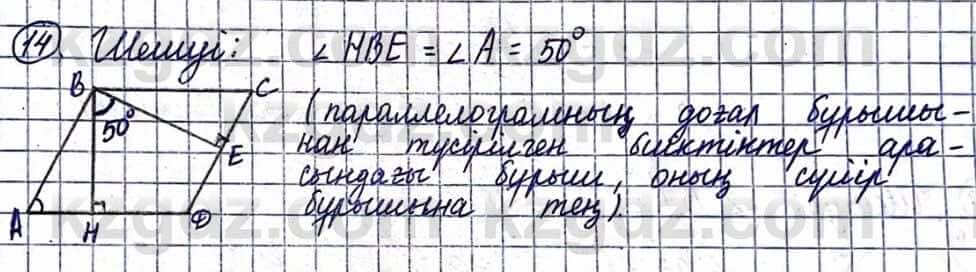 14. Шешуі: ∠HBE = ∠A = 50°
B C
50°
E
A H D
(параллелограмның доғал бұрышы-
нан түсірілген биіктіктер ара-
сындағы бұрыш, оның сүйір
бұрышына тең).
kzgdz.com